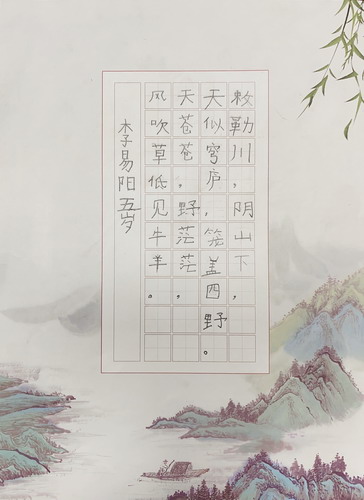 敕勒川，阴山下，
天似穹庐，笼盖四野。
天苍苍，野茫茫，
风吹草低见牛羊。
李易阳五岁